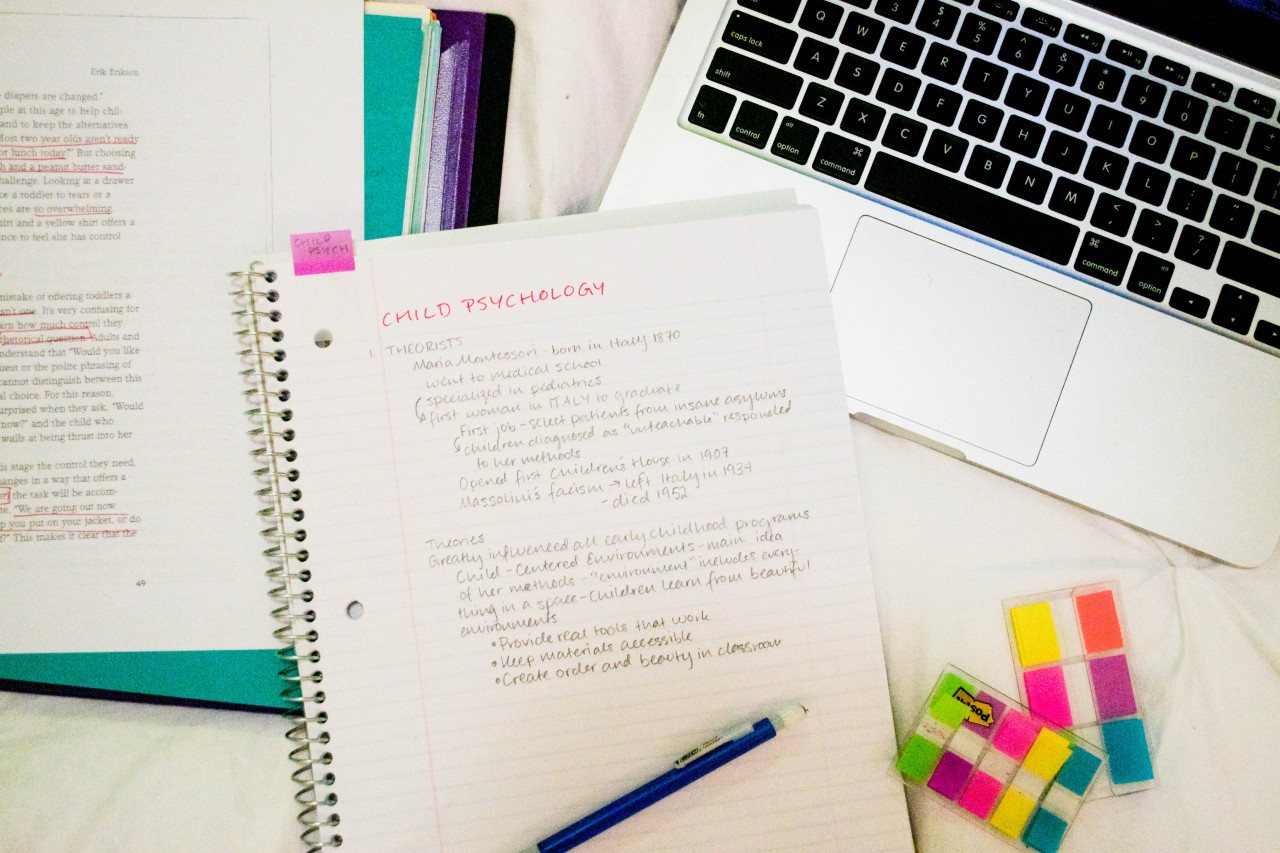 Erik Erikson
diapers are changed."
ple at this age to help chil-
and to keep the alternatives
Most two year olds aren't ready
or lunch today?" But choosing
h and a peanut butter sand-
hallenge. Looking at a drawer
ce a toddler to tears or a
ces are so overwhelming.
hirt and a yellow shirt offers a
nce to feel she has control
mistake of offering toddlers a
isn't one. It's very confusing for
arn how much control they
rhetorical question. Adults and
nderstand that "Would you like
uest or the polite phrasing of
cannot distinguish between this
al choice. For this reason,
urprised when they ask, "Would
now?" and the child who
wails at being thrust into her
is stage the control they need,
hanges in a way that offers a
the task will be accom-
te, "We are going out now.
p you put on your jacket, or do
f?" This makes it clear that the
49
CHILD
PSYCH
CHILD PSYCHOLOGY
1. THEORISTS
Maria Montessori - born in Italy 1870
went to medical school
specialized in pediatrics
first woman in ITALY to graduate
First job - select patients from insane asylums
children diagnosed as "unteachable" responded
to her methods
Opened first Children's House in 1907
Massolini's facism → left Italy in 1934
- died 1952
Theories
Greatly influenced all early childhood programs
Child-Centered Environments - main idea
of her methods - "environment" includes every-
thing in a space - Children learn from beautiful
environments
• Provide real tools that work
• Keep materials accessible
• Create order and beauty in classroom
BIC
Post-it
caps lock
shift
fn
control
alt
option
command
⌘
Q W E R T Y U I O P
A S D F G H J K L ; :
Z X C V B N M , < . > / ?
3 $ 4 % 5 ^ 6 & 7 * 8 ( 9 ) 0
⌘
command
alt
option